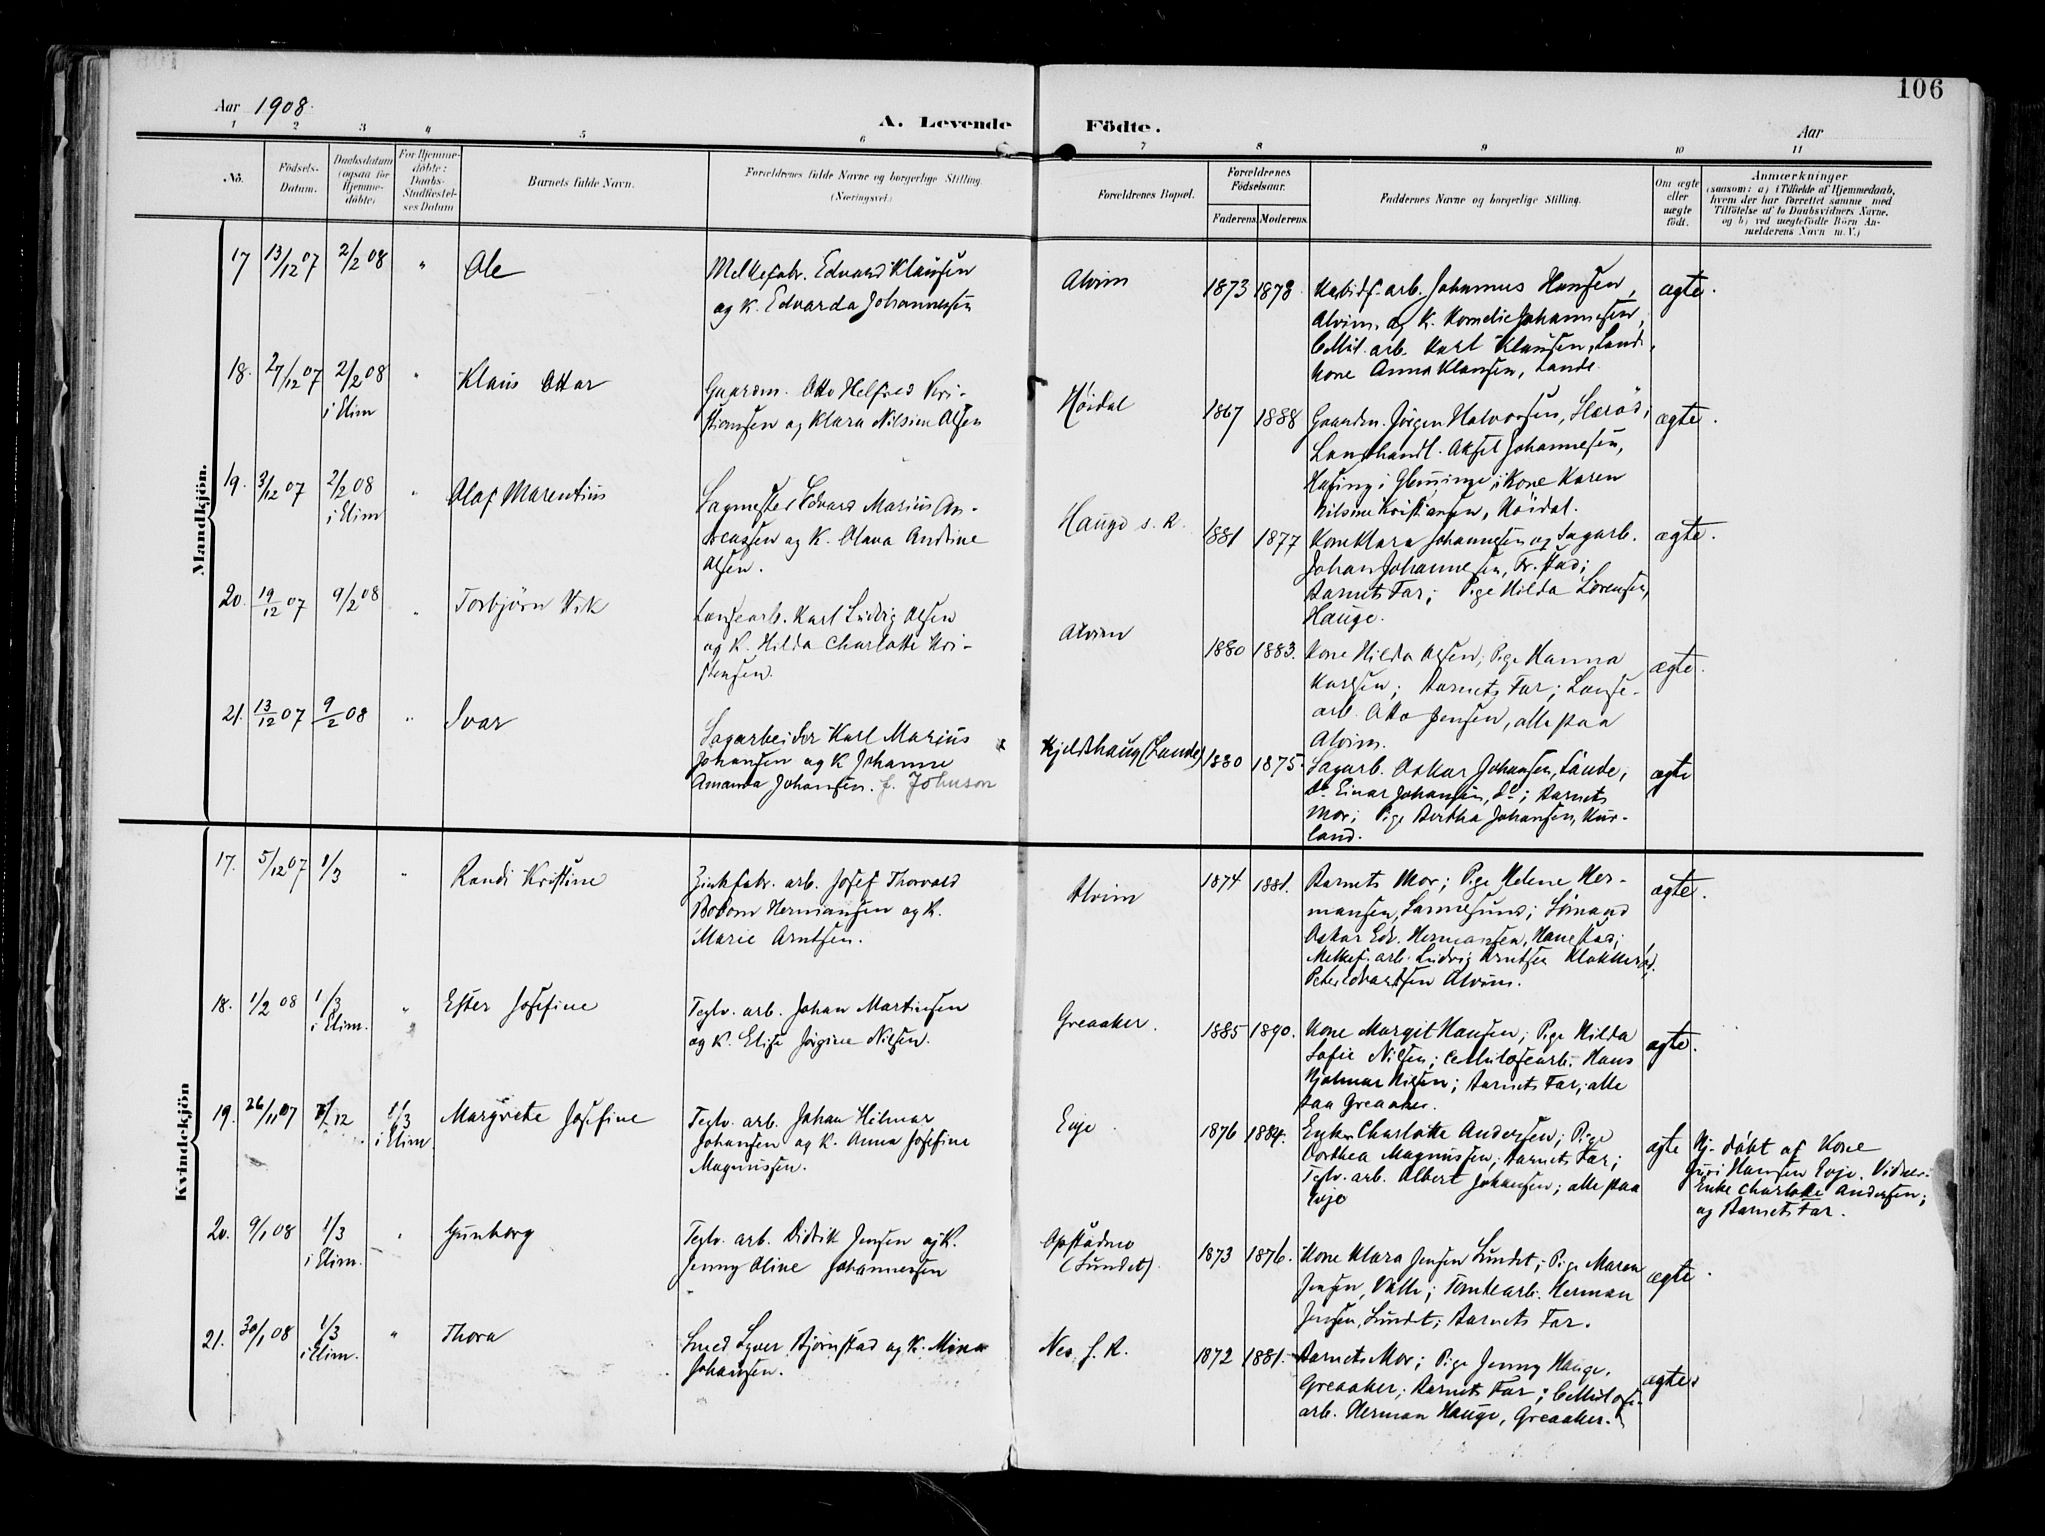 106
Aar 1908.
A. Levende Födte.
Aar
1 2 3 4 5 6 7 8 9 10 11
Nô.
Födsels-
Datum.
Daabsdatum
(ogsaa for
Hjemme-
döbte)
For Hjemme-
döbte:
Daabs-
Stadfæstel-
ses Datum
Barnets fulde Navn.
Forældrenes fulde Navne og borgerlige Stilling.
(Næringsvei.)
Forældrenes Bopæl.
Forældrenes
Födselsaar.
Faderens. Moderens.
Faddernes Navne og borgerlige Stilling.
Om ægte
eller
uægte
födt.
Anmærkninger
(saasom: a) i Tilfælde af Hjemmedaab,
hvem der har forrettet samme med
Tilföielse af to Daabsvidners Navne,
og b) ved uægtefödte Börn An-
melderens Navn m. V.)
Mandkjön.
17 13/12 07 2/2 08 " Ole
Melkefabr. Edvard Klausen
og K. Edvarda Johannessen
Alvim 1873 1878
Karbidf. arb. Johannes Hansen,
Alvim, og K. Kornelie Johannesen,
Cellul. arb. Karl Klausen, Lande,
Kone Anna Klausen, Lande.
ægte.
18. 27/12 07 2/2 08 "
i Elim
Klaus Ottar
Gaardm. Otto Helfred Kri-
stiansen og Klara Nilsine Olsen
Höidal 1867 1888
Gaardm. Jörgen Halvorsen,
Landhandl. Aksel Johannesen,
i Glemminge; Kone Karen
Nilsine Kristiansen, Höidal.
ægte.
19. 3/12 07 2/2 08 "
i Elim
Olaf Marentius
Sagmester Edvard Marius An-
dreassen og K. Olava Andrine
Olsen.
Hauge s. K. 1881 1877
Kone Klara Johannesen og Sagarb.
Johan Johannesen, Fr.stad;
Barnets Far; Pige Hilda Lorensen,
Hauge.
ægte.
20. 19/12 07 9/2 08 " Torbjörn Vik
Lossearb. Karl Ludvig Olsen
og K. Hilda Charlotte Kri-
stensen.
Alvim 1880 1883.
Kone Hilda Olsen; Pige Hanna
Karlsen; Barnets Far; Losse-
arb. Otto Jensen, alle paa
Alvim.
ægte.
21. 13/12 07 9/2 08 " Ivar
Sagarbeider Karl Marius
Johansen og K Johanne
Amanda Johansen. f. Johnson
Kjeldshaug (Lande) 1880 1875.
Sagarb. Oskar Johansen, Lande,
Do Einar Johansen, do; Barnets
Mor; Pige Bertha Johansen, Kur-
land.
ægte
Kvindekjön
17. 5/12 07 1/3 " Randi Kristine
Zinkfabr. arb. Josef Thorvald
Bodom Hermansen og K.
Marie Arntsen.
Alvim 1874 1881.
Barnets Mor; Pige Helene Her-
mansen, Sannesund; Sömand
Oskar Edv. Hermansen, Hanestad;
Melkef. arb. Ludvig Arntsen Klokkeröd,
Peter Edvardsen Alvim.
ægte.
18. 1/2 08 1/3 "
i Elim.
Ester Josefine
Teglv. arb. Johan Martinsen
og K. Elise Jörgine Nilsen.
Greaaker. 1885 1890.
Kone Margit Hansen; Pige Hilda
Sofie Nilsen; Cellulosearb. Hans
Hjalmar Nilsen; Barnets Far, alle
paa Greaaker.
ægte.
19. 26/11 07 /12 1/3
i Elim
Margrete Josefine
Teglv. arb. Johan Hilmar
Johansen og K. Anna Josefine
Magnussen.
Evje. 1876 1884.
Enke Charlotte Andersen; Pige
Dorthea Magnussen; Barnets Far;
Teglv. arb. Albert Johansen; alle paa
Evje
ægte
Hj. döbt af Kone
Guri Hansen Evje. Vidner:
Enke Charlotte Andersen;
og Barnets Far.
20. 9/1 08 1/3 "
i Elim.
Gunborg
Teglv. arb. Didrik Jensen og K.
Jenny Oline Johannessen
Opstadmo
(Sundet) 1873 1876.
Kone Klara Jensen Sundet; Pige Maren
Jensen, Valle; Tomtearb. Herman
Jensen, Sundet; Barnets Far.
ægte.
21. 30/1 08 1/3 "
i Elim.
Thora
Smed Syver Björnstad og K. Mina
Johansen.
Nes s. K. 1872 1881.
Barnets Mor; Pige Jenny Hauge,
Greaaker; Barnets Far; Cellulose-
arb. Herman Hauge, Greaaker.
ægte.